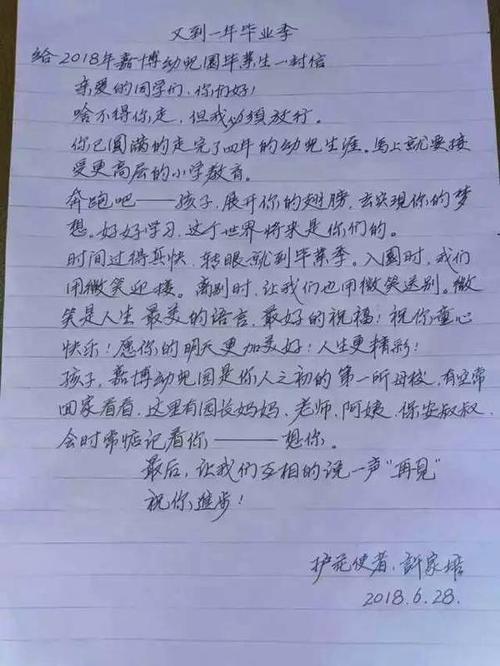 又到一年毕业季
给2018年嘉博幼儿园毕业生一封信
亲爱的同学们,你们好!
啥不得你走,但我必须放行。
你已圆满的走完了四年的幼儿生涯。马上就要接
受更高层的小学教育。
奔跑吧——孩子,展开你的翅膀,去实现你的梦
想。好好学习,这个世界将来是你们的。
时间过得真快,转眼就到毕业季。入园时,我们
用微笑迎接。离别时,让我们也用微笑送别。微
笑是人生最美的语言,最好的祝福!祝你童心
快乐!愿你的明天更加美好!人生更精彩!
孩子,嘉博幼儿园是你人之初的第一所母校,有空常
回家看看,这里有园长妈妈,老师,阿姨,保安叔叔,
会时常惦记着你———想你。
最后,让我们互相的说一声“再見”
祝你進步!
护花使者:許家培
2018.6.28.